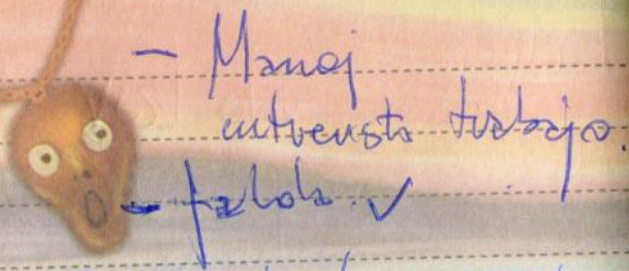 - Manoj
entrevista trabajo.
- falda ✓